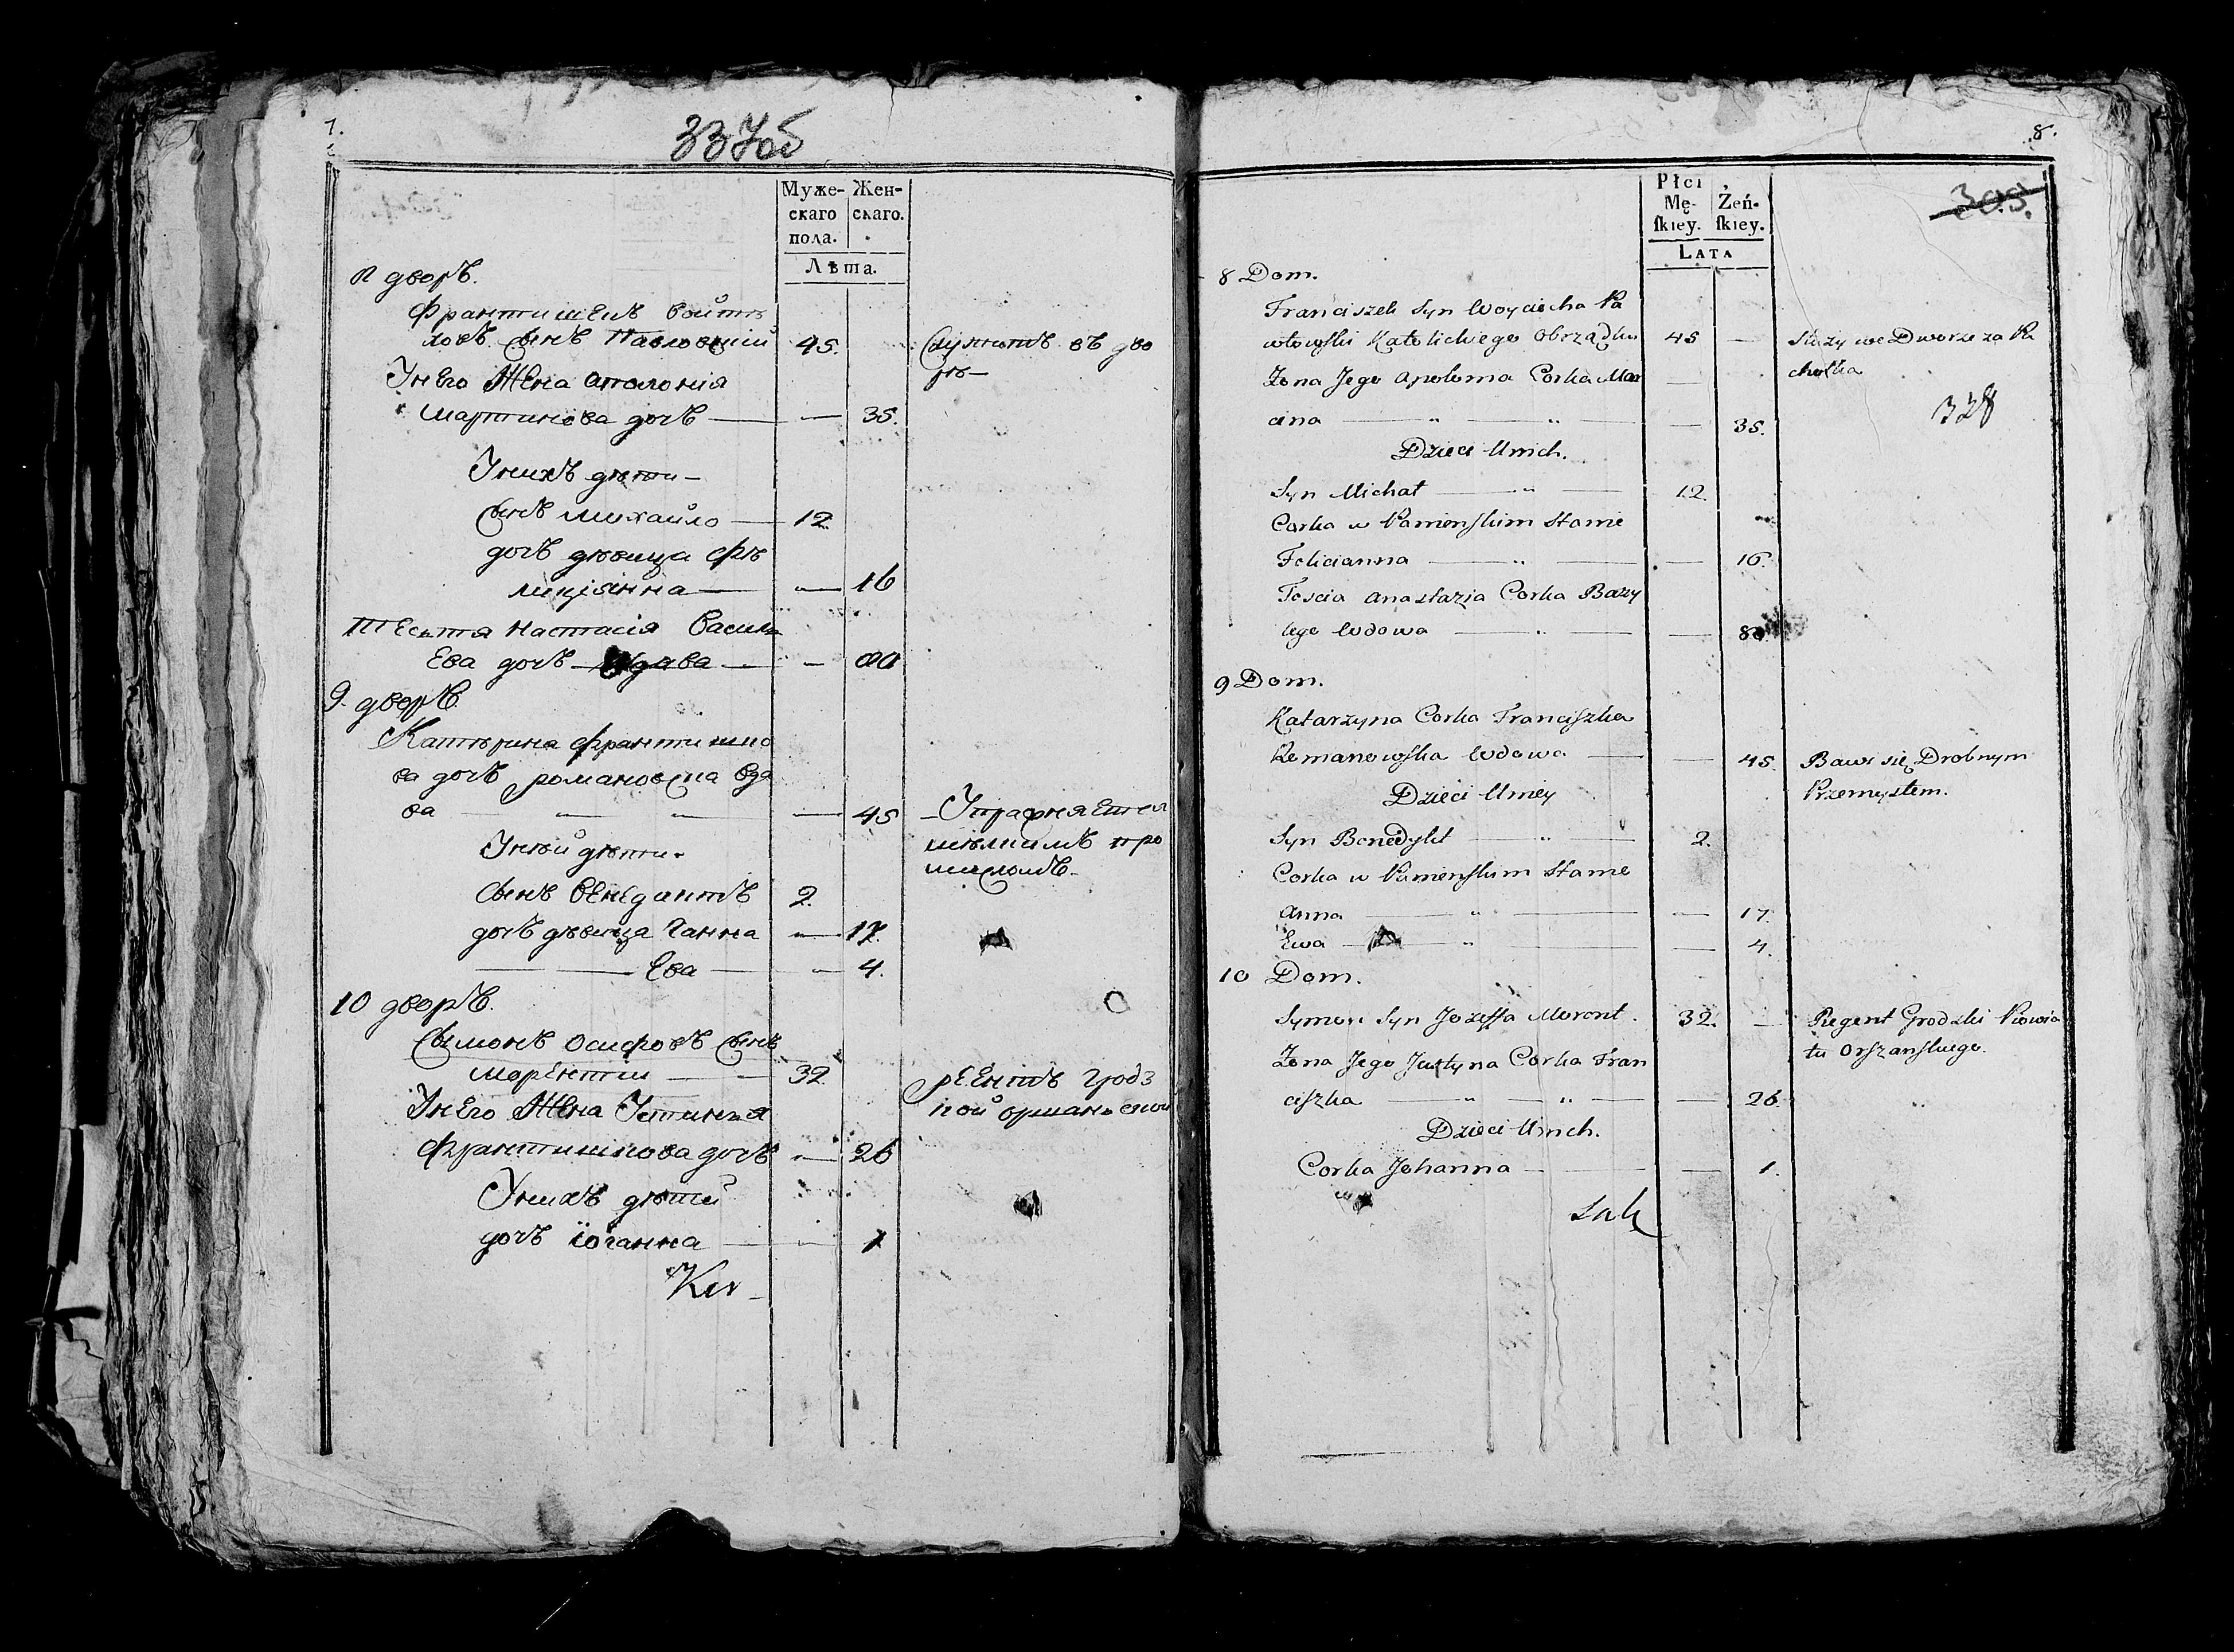 7.
337об
Муже- Жен-
скаго скаго.
пола.
Лѣта.
8 дворъ.
Франтишекъ войтѣ
ховъ сынъ Павловский 45. Служитъ въ дво
Унего Жена аполонія рѣ —
мартинова дочь — — 35.
Унихъ дѣти —
сынъ михайло — 12.
дочь дѣвица Фѣ
лиціянна — — 16
тестя Настасія Васил
ева дочь вдава — — 80
9. дворъ.
Катѣрина франтишко
ва дочь романовска вдо
ва — — — — 45 — Упражняется
Уней дѣти. мѣлкимъ про
мисломъ.
сынъ бенедиктъ 2.
дочь дѣвица Ганна — 17.
— — Ева — — 4.
10 дворъ.
Сымонъ осифовъ сынъ
морентш — — 32. реентъ грод
Унего Жена Устинья ской оршанской
Франтишкова дочь — 26
Унихъ дѣтей
дочь іоганна — — 1
8.
Płci
Mę- Żeń-
ſkiey. ſkiey.
LATA
305.
8 Dom.
Franciszek Syn Woyciecha Pa
włowſki Katolickiego obrządku 45 — Służy we Dworze za Pa
Zona Jego Apolonia Corka Mar — chołka
328
cina — " — " — — 35.
Dzieci Unich.
Syn Michał — " — 12.
Corka w Panienſkim Stanie
Felicianna — " — — 16.
Tescia Anastazia Corka Bazy
lego Wdowa — " — — 80
9 Dom.
Katarzyna Corka Franciszka
Romanowſka Wdowa — — 45. Bawi się Drobnym
Dzieci Uniey Przemysłem.
Syn Benedykt — " — 2.
Corka w Panienſkim Stanie
Anna — " — — 17.
Ewa — " — — 4.
10 Dom.
Symon Syn Jozeffa Moront. 32. — Regent Grodzki Powia
Zona Jego Justyna Corka Fran tu Orſzanſkiego.
ciſzka — " — " — — 26.
Dzieci Unich.
Corka Johanna — — — 1.